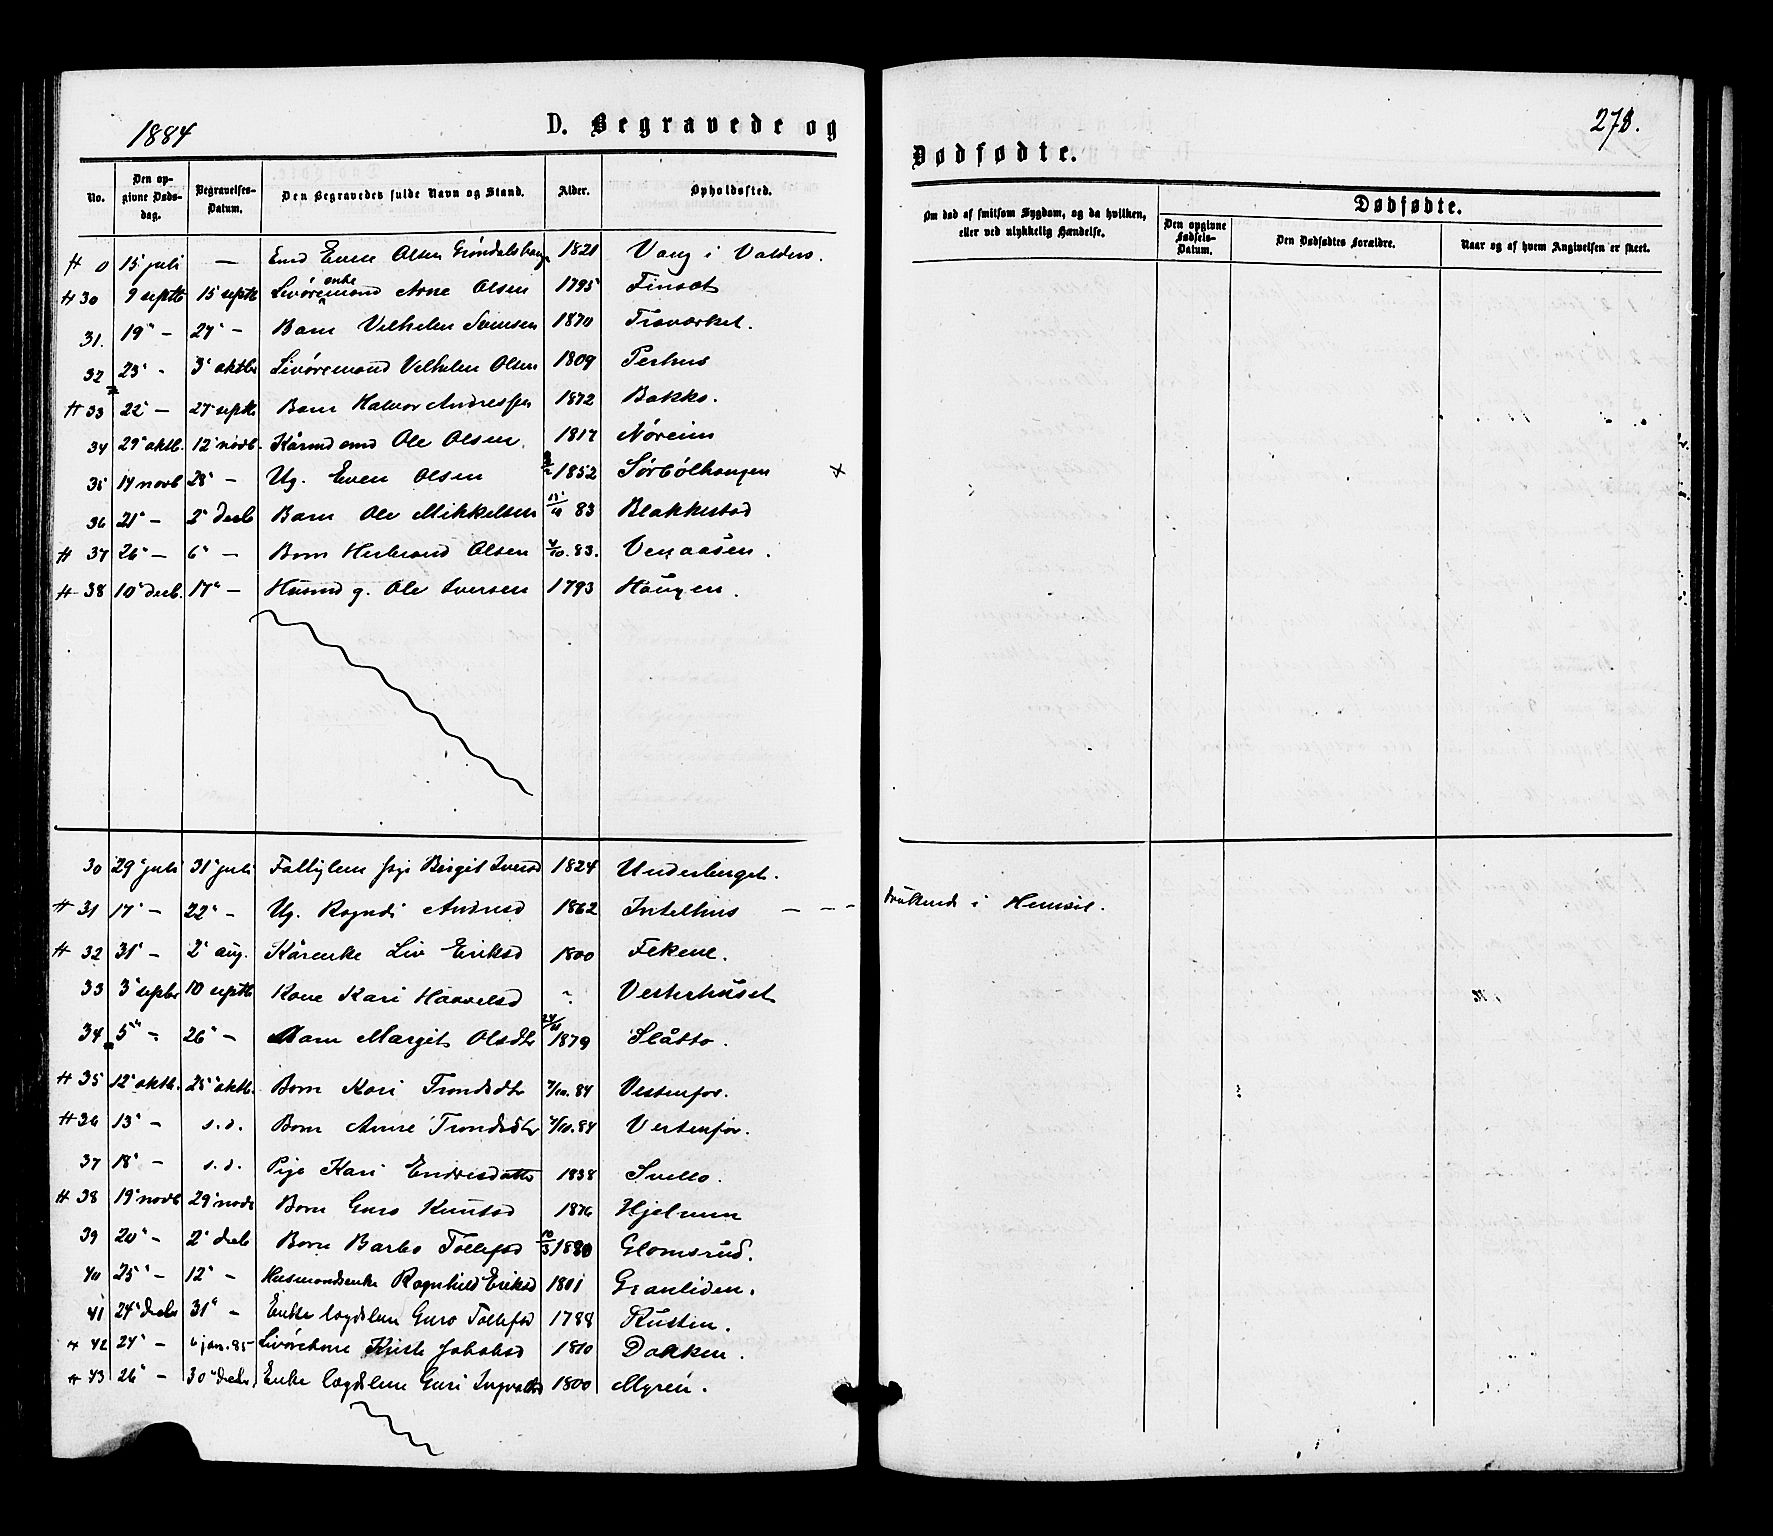 1884
D. Begravede og
Dødfødte.
278.
No.
Den opgivne Dødsdag.
Begravelses-Datum.
Den Begravedes fulde Navn og Stand.
Alder.
Opholdssted.
Om død af smitsom Sygdom, og da hvilken, eller ved ulykkelig Hændelse.
Dødfødte.
Den opgivne Fødsels-Datum.
Den Dødfødtes Forældre.
Naar og af hvem Angivelsen er skeet.
# 0 15 juli — Even Olsen 1821 Vang i Valders.
# 30 9 septb 15 septb Livøremand Arne Olsen 1795 Finset
enke
31. 19" - 27" - Barn Vilhelm 1870
32 23" - 3" oktbr Livøremand Vilhelm Olsen 1809 Perhus
# 33 22" — 27 septb Barn Halvor Andressen 1872 Bakko.
34 29" oktb. 12" novb. Kårmd Ole Olsen. 1817 Nøreim
35 14 novb 28" — Ug. Even Olsen 1852 Sørbølhaugen ×
36 21" — 2" decb Barn Ole Mikkelsen 83 Blakkestad
# 37 26" — 6" — Barn Herbrand Olsen 4/10. 83. Venaasen.
# 38 10" decb. 17" — Husmd g. Ole Iversen 1793 Haugen.
30 29" juli 31" juli Birgit 1824 Underberget.
# 31 17" — 22" - Ug. Ragndi 1862 Intelhus — - - druknede i Hemsil.
# 32 31" — 2" aug. Kårenke Liv Eriksd 1800 Fekene.
33 3" septbr 10 septb Kone Kari Haavelsd Vesterhuset
34 5" - 26" — Barn Margit Olsdtr 1879 Slåtto.
# 35 12" oktb. 25" oktb. Barn Kari Trondsdtr 84 Vestenfor.
# 36 13" — s.d. Barn Anne Trondsdtr 84 Vestenfor.
37 18" — s.d. Pige Kari Endresdatter 1838 Svello.
# 38 19" novb 29" novb Barn Guro Knutsd 1876
39 20" — 2" decb Barn Barbo Tollefsd 1880 Glomsrud.
40 25" — 12" — Husmandsenke Ragnhild Eriksd 1801 Granliden.
41 24" decbr 31" — Enke lægdslem Guro Tollefsd 1788 Rusten.
# 42 24" — 6 jan. 85 Livørekone Jakobsd 1810 Dokken.
# 43 26" — 30" decbr Enke lægdslem Guri 1800 Myren.